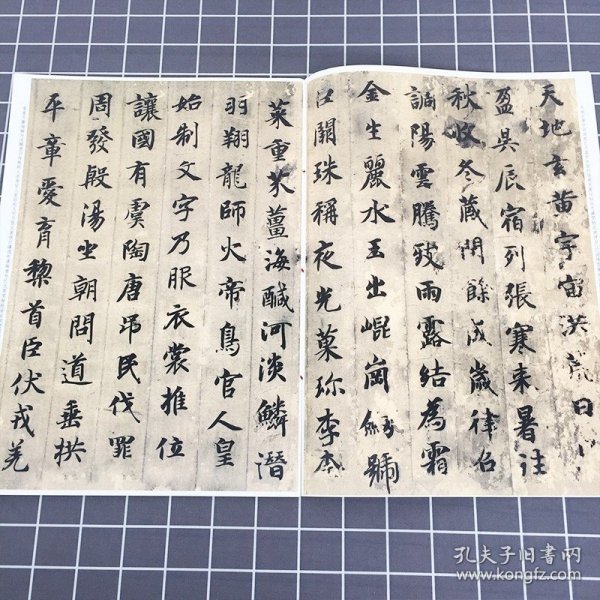 天地玄黃宇宙洪荒日
盈昃辰宿列張寒来暑往
秋收冬藏閏餘成歲律召
調陽雲騰致雨露結為霜
金生麗水玉出崐崗劒號
巨闕珠稱夜光菓珎李柰
菜重芥薑海醎河淡鱗潛
羽翔龍師火帝鳥官人皇
始制文字乃服衣裳推位
讓國有虞陶唐吊民伐罪
周發殷湯坐朝問道垂拱
平章愛育黎首臣伏戎羌
孔夫子旧書网
www.kongfz.com